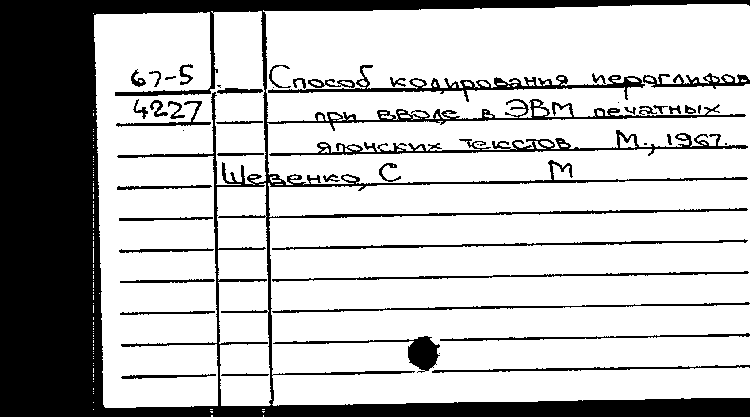 67-5 Способ кодирования иероглифов
4227 при вводе в ЭВМ печатных
японских текстов. М., 1967.
Шевенко, С М